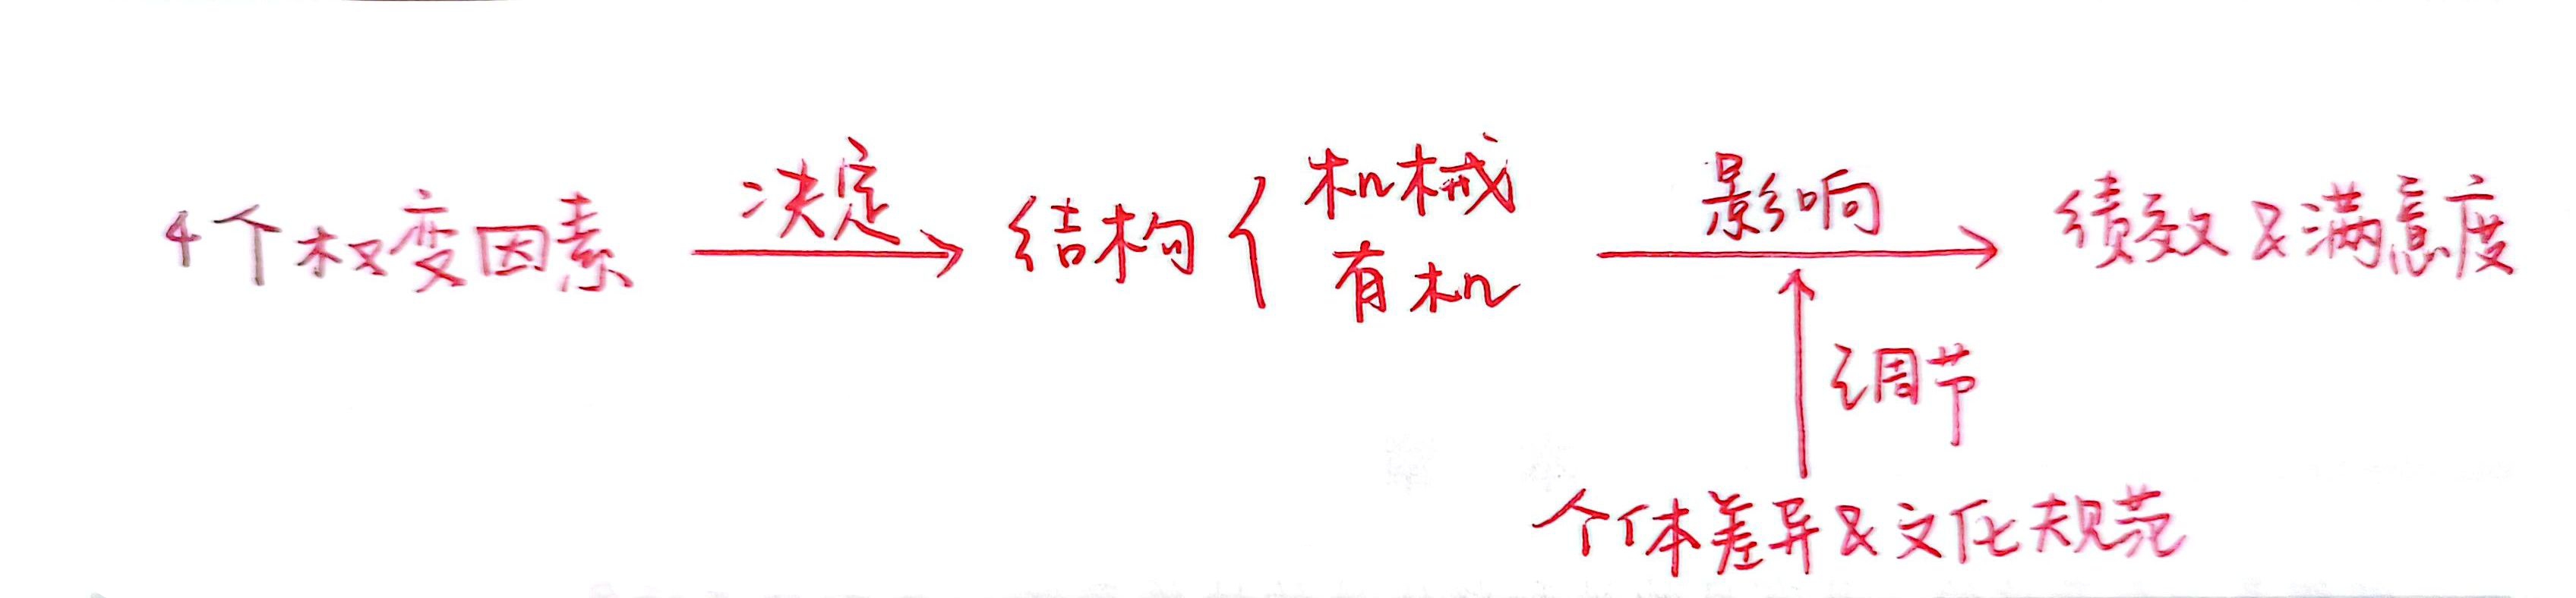 4个权变因素 决定 结构 { 机械 影响 绩效 & 满意度
有机
调节
个体差异 & 文化规范